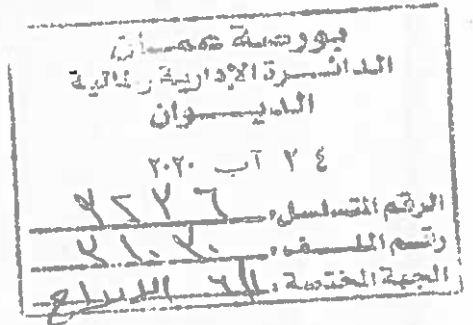 بورصة عمان
الدائرة الإدارية والمالية
الديوان
٢٤ آب ٢٠٢٠
الرقم المتسلسل:
رقم الملف:
الجهة المختصة: الإدراج